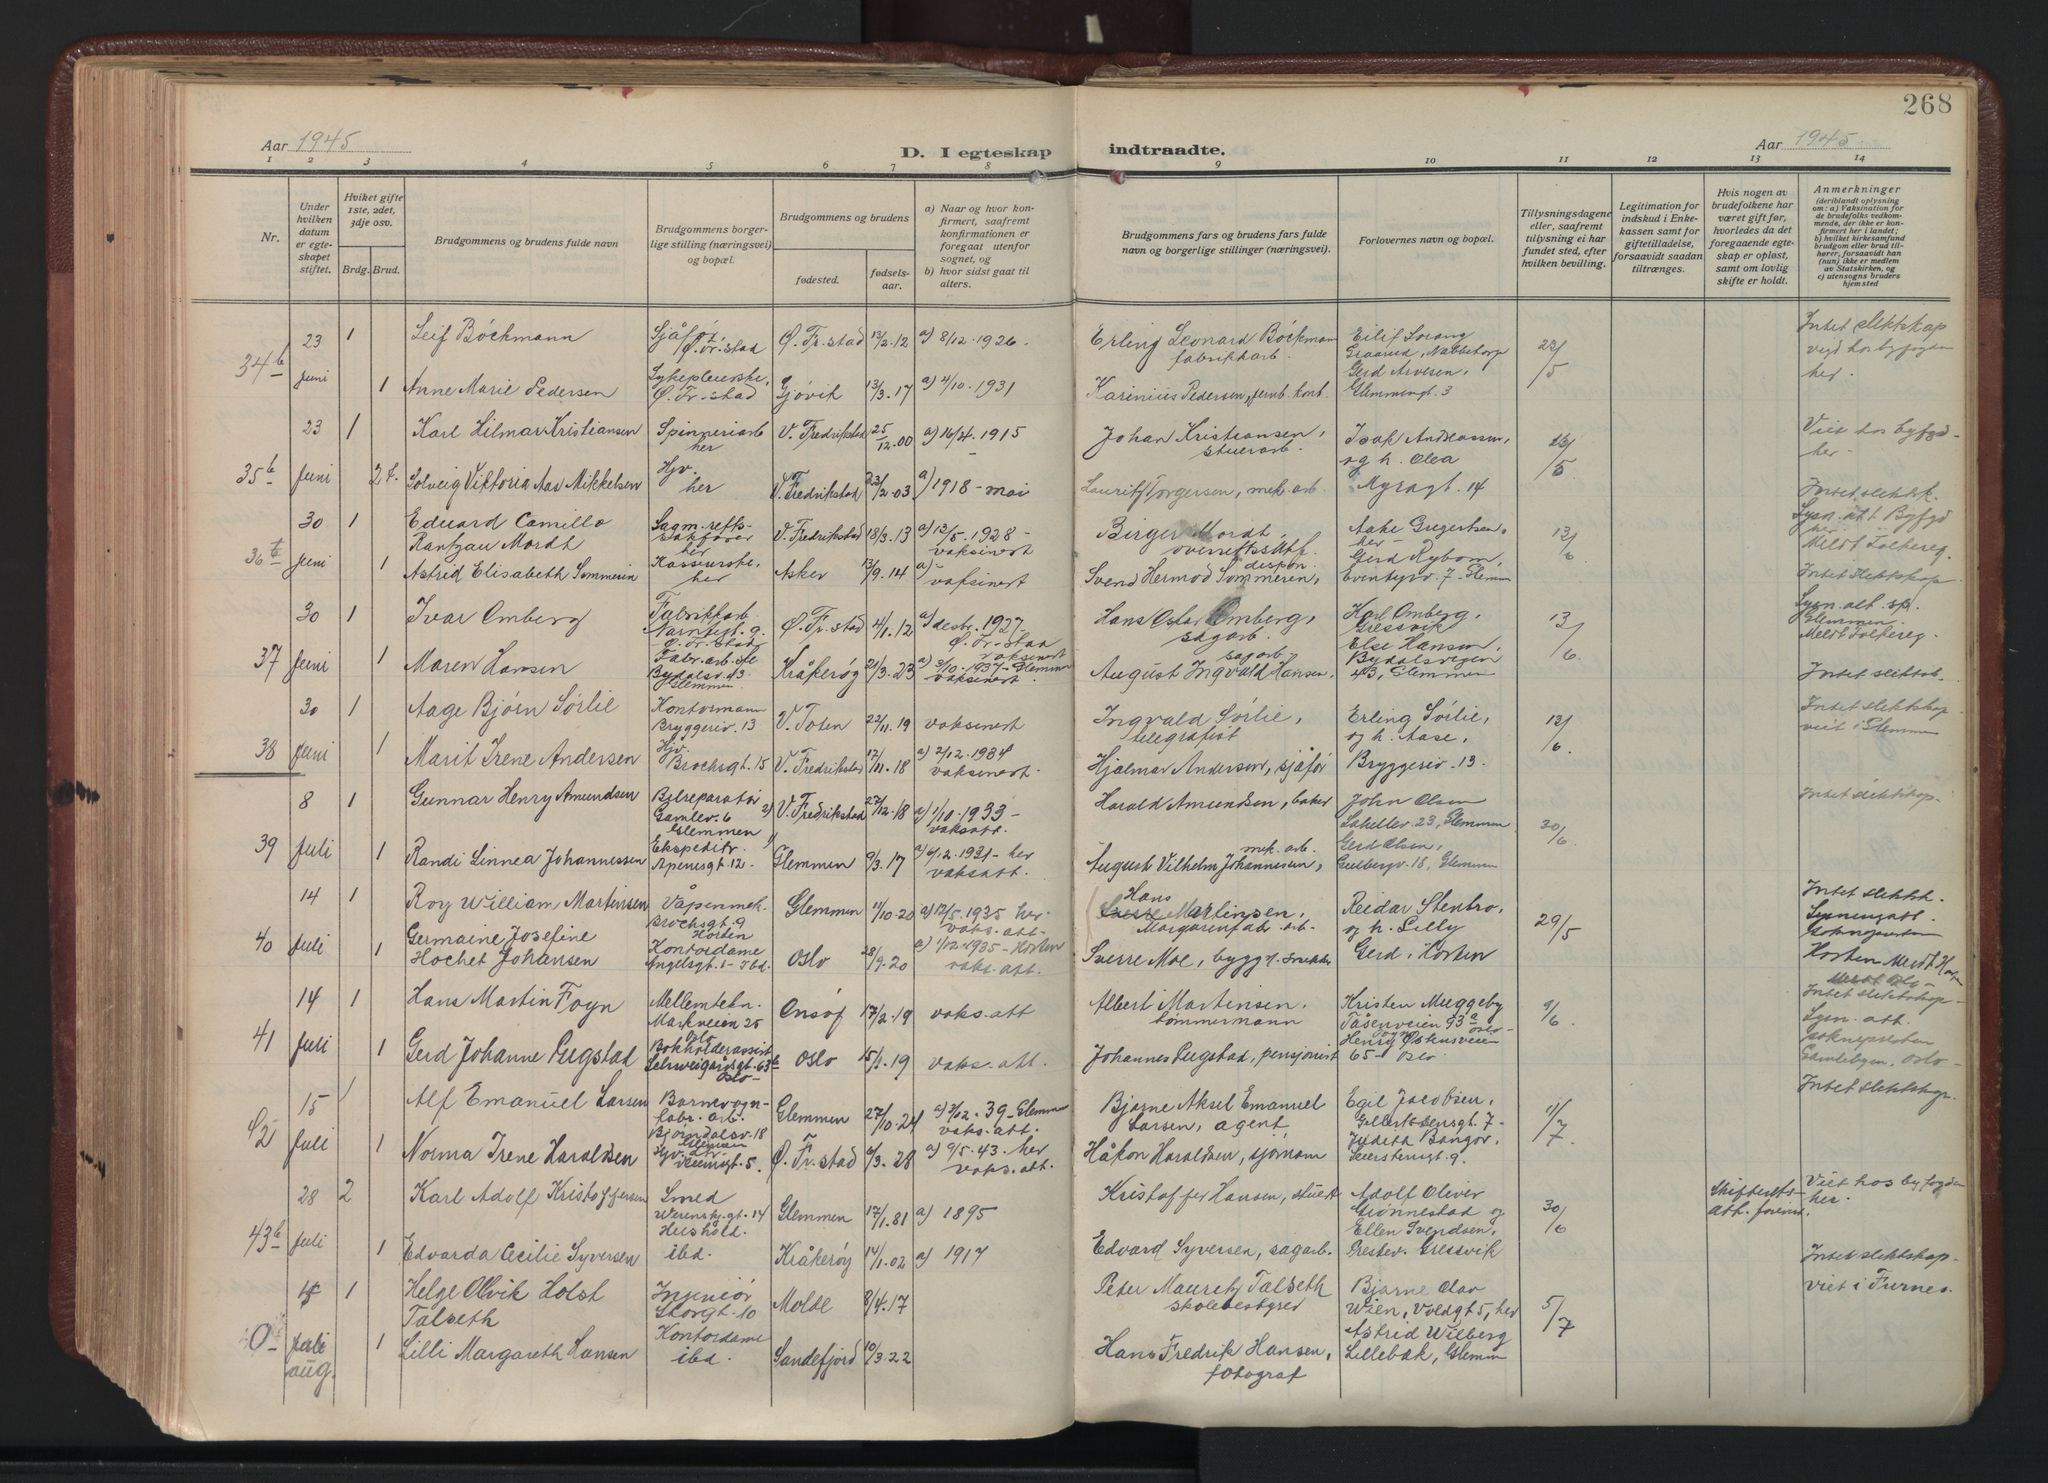 268
Aar 1945
D. I egteskap indtraadte.
Aar 1945
1 2 3 4 5 6 7 8 9 10 11 12 13 14
Nr.
Under hvilken datum er egteskapet stiftet.
Hviket gifte 1ste, 2det, 3dje osv.
Brdg. Brud.
Brudgommens og brudens fulde navn
Brudgommens borgerlige stilling (næringsvei) og bopæl.
Brudgommens og brudens
fødested. fødselsaar.
a) Naar og hvor konfirmert, saafremt konfirmationen er foregaat utenfor sognet, og
b) hvor sidst gaat til alters.
Brudgommens fars og brudens fars fulde navn og borgerlige stillinger (næringsvei).
Forlovernes navn og bopæl.
Tillysningsdagene eller, saafremt tillysning ei har fundet sted, efter hvilken bevilling.
Legitimation for indskud i Enkekassen samt for giftetilladelse, forsaavidt saadan tiltrænges.
Hvis nogen av brudefolkene har været gift før, hvorledes da det foregaaende egteskap er opløst, samt om lovlig skifte er holdt.
Anmerkninger
(deriblandt oplysning om: a) Vaksination for de brudefolks vedkommende, der ikke er konfirmert her i landet; b) hvilket kirkesamfund brudgom eller brud tilhører, forsaavidt han (hun) ikke er medlem av Statskirken, og c) utensogns bruders hjemsted
34b 23 Juni 1 Leif Böckmann Sjåfør Ø. Fr.stad Ø. Fr.stad 13/2.12 a) 8/12.1926. Erling Leonard Böckmann fabrikkarb. 22/5 Intet slektskap
vigd hos byfogden her.
1 Anne Marie Pedersen Sykepleierske, Ø. Fr.stad Gjøvik 13/3.17 a) 4/10.1931 Karenius Pedersen, Gerd Arvesen, Glemmengt. 3
35b 23 Juni 1 Karl Hilmar Kristiansen Spinneriarb her V. Fredrikstad 25/12.00 1915 Johan Kristiansen, stuerarb. og h. Olea Viet hos byfgd her
2 Solveig Viktoria Aas Mikkelsen Hjv. her V. Fredrikstad 23/2.03 a) 1918 - mai Lauritz Torgersen, mek. arb. Myragt. 14
36 30 Juni 1 Eduard Camillo Rantzau Mordt her V. Fredrikstad 18/3.13 a) 13/5.1928 - vaksinert Birger Mordt, Aage Gregertsen, her 13/6 Intet slektsk.
1 Astrid Elisabeth Sommerin Kassererske, her Asker 13/9.14 a) - vaksinert Svend Hermod Sommerin, dispon. Meldt Folkereg.
37 30 Juni 1 Ivar Omberg Fabrikkarb Ø. Fr.stad Ø. Fr.stad 4/1.12 a) 1927 Ø. Fr.stad vaksinert Hans Oskar Omberg, sagarb. Karl Omberg, Gressvik 13/6. Intet slektskap
Glemmen Meldt Folkereg.
1 Maren Hansen Bydalsv. 43 Glemmen Kråkerøy 21/3.23 1937 - Glemmen vaksinert. August Ingvald Hansen, sagarb, Else Hansen Bydalsveien 43, Glemmen
38 30 Juni 1 Aage Bjørn Sørlie Kontormann Bryggeriv. 13 V. Toten 22/11.19 vaksinert Ingvald Sørlie, telegrafist Erling Sørlie, og h. Aase, 13/6. Intet slektskap
viet i Glemmen
1 Marit Irene Andersen Hjv. Brochsgt. 15 V. Fredrikstad 18 a) 2/12.1934 vaksinert. Hjalmar Andersen, sjåfør Bryggeriv. 13.
39 8 Juli 1 Gunnar Henry Amundsen Bilreparatør Gamlev. 6 Glemmen V. Fredrikstad 27/12.18 a) 1/10.1933 - vaksatt. Harald Amundsen, baker John Olsen 23, Glemmen 30/6. Intet slektskap.
1 Randi Linnea Johannessen Ekspeditr. Apenesgt. 12 Glemmen 9/3.17 a) 6/12.1931 - her vaksatt. August Vilhelm Johannessen, mek. arb. Gerd Olsen, Gulbergv. 18, Glemmen
40 14 Juli 1 Roy William Martinsen Våpenmek. Brochsgt. 9 Horten Glemmen 11/10.20 a) 12/5.1935 her vaks. att. Hans Martinsen, Margarinfabr. arb. Reidar Stenbro, og h. Lilly 29/5 Intet slektsk.
1 Germaine Josefine Hochet Johansen Kontordame Oslo 28/9.20 a) 1/12.1935 - Horten vaks. att. Sverre Moe, bygg. Gerd, Horten
41 14 Juli 1 Hans Martin Fogn Markveien 25 Oslo Onsøy 17/2.19 vaks. att Albert Martinsen. tømmermann Kristen Muggeby Tåsenveien 93a Oslo 9/6. Intet slektskap
Gamlebyen, Oslo
1 Gerd Johanne Rugstad Bokholderassist Schweigårdsgt. 63b Oslo Oslo 15/1.19 vaks. att. Johannes Rugstad, pensjonist 65 - Oslo.
42 15 Juli 1 Alf Emanuel Larsen Barnevognfabr. arb. Bjørndalsv. 18 Glemmen Glemmen 27/10.24 39 - Glemmen vaks. att. Bjarne Aksel Emanuel Larsen, agent Egil Jacobsen, 11/7. Intet slektskap.
1 Norma Irene Haraldsen Hjv. Ø. Fr.stad 28 a) 9/5.43. her vaks. att. Håkon Haraldsen, sjømann
43b 28 Juli 2 Karl Adolf Kristoffersen Smed Werenskj.gt. 14 Glemmen 17/1.81 a) 1895 Kristoffer Hansen, Adolf Oliver Grønnestad og 30/6 Viet hos byfogden her.
1 Edvarda Cecilie Syversen Hushold. ibd. Kråkerøy 14/1.02 a) 1917 Edvard Syversen, sagarb. Ellen Svendsen, Prestev. Gressvik
Juli aug. 1 Helge Olvik Holst Talseth Ingeniør Storgt. 10 Molde 8/4.17 Peter Mauretz Talseth skolebestyrer Bjarne Olav Wien, Voldgt 5, her 5/7 Intet slektskap
viet i Furnes.
1 Lilli Margareth Hansen Kontordame ibd. Sandefjord 10/3.22 Hans Fredrik Hansen, fotograf Astrid Wilberg Lillebæk, Glemm